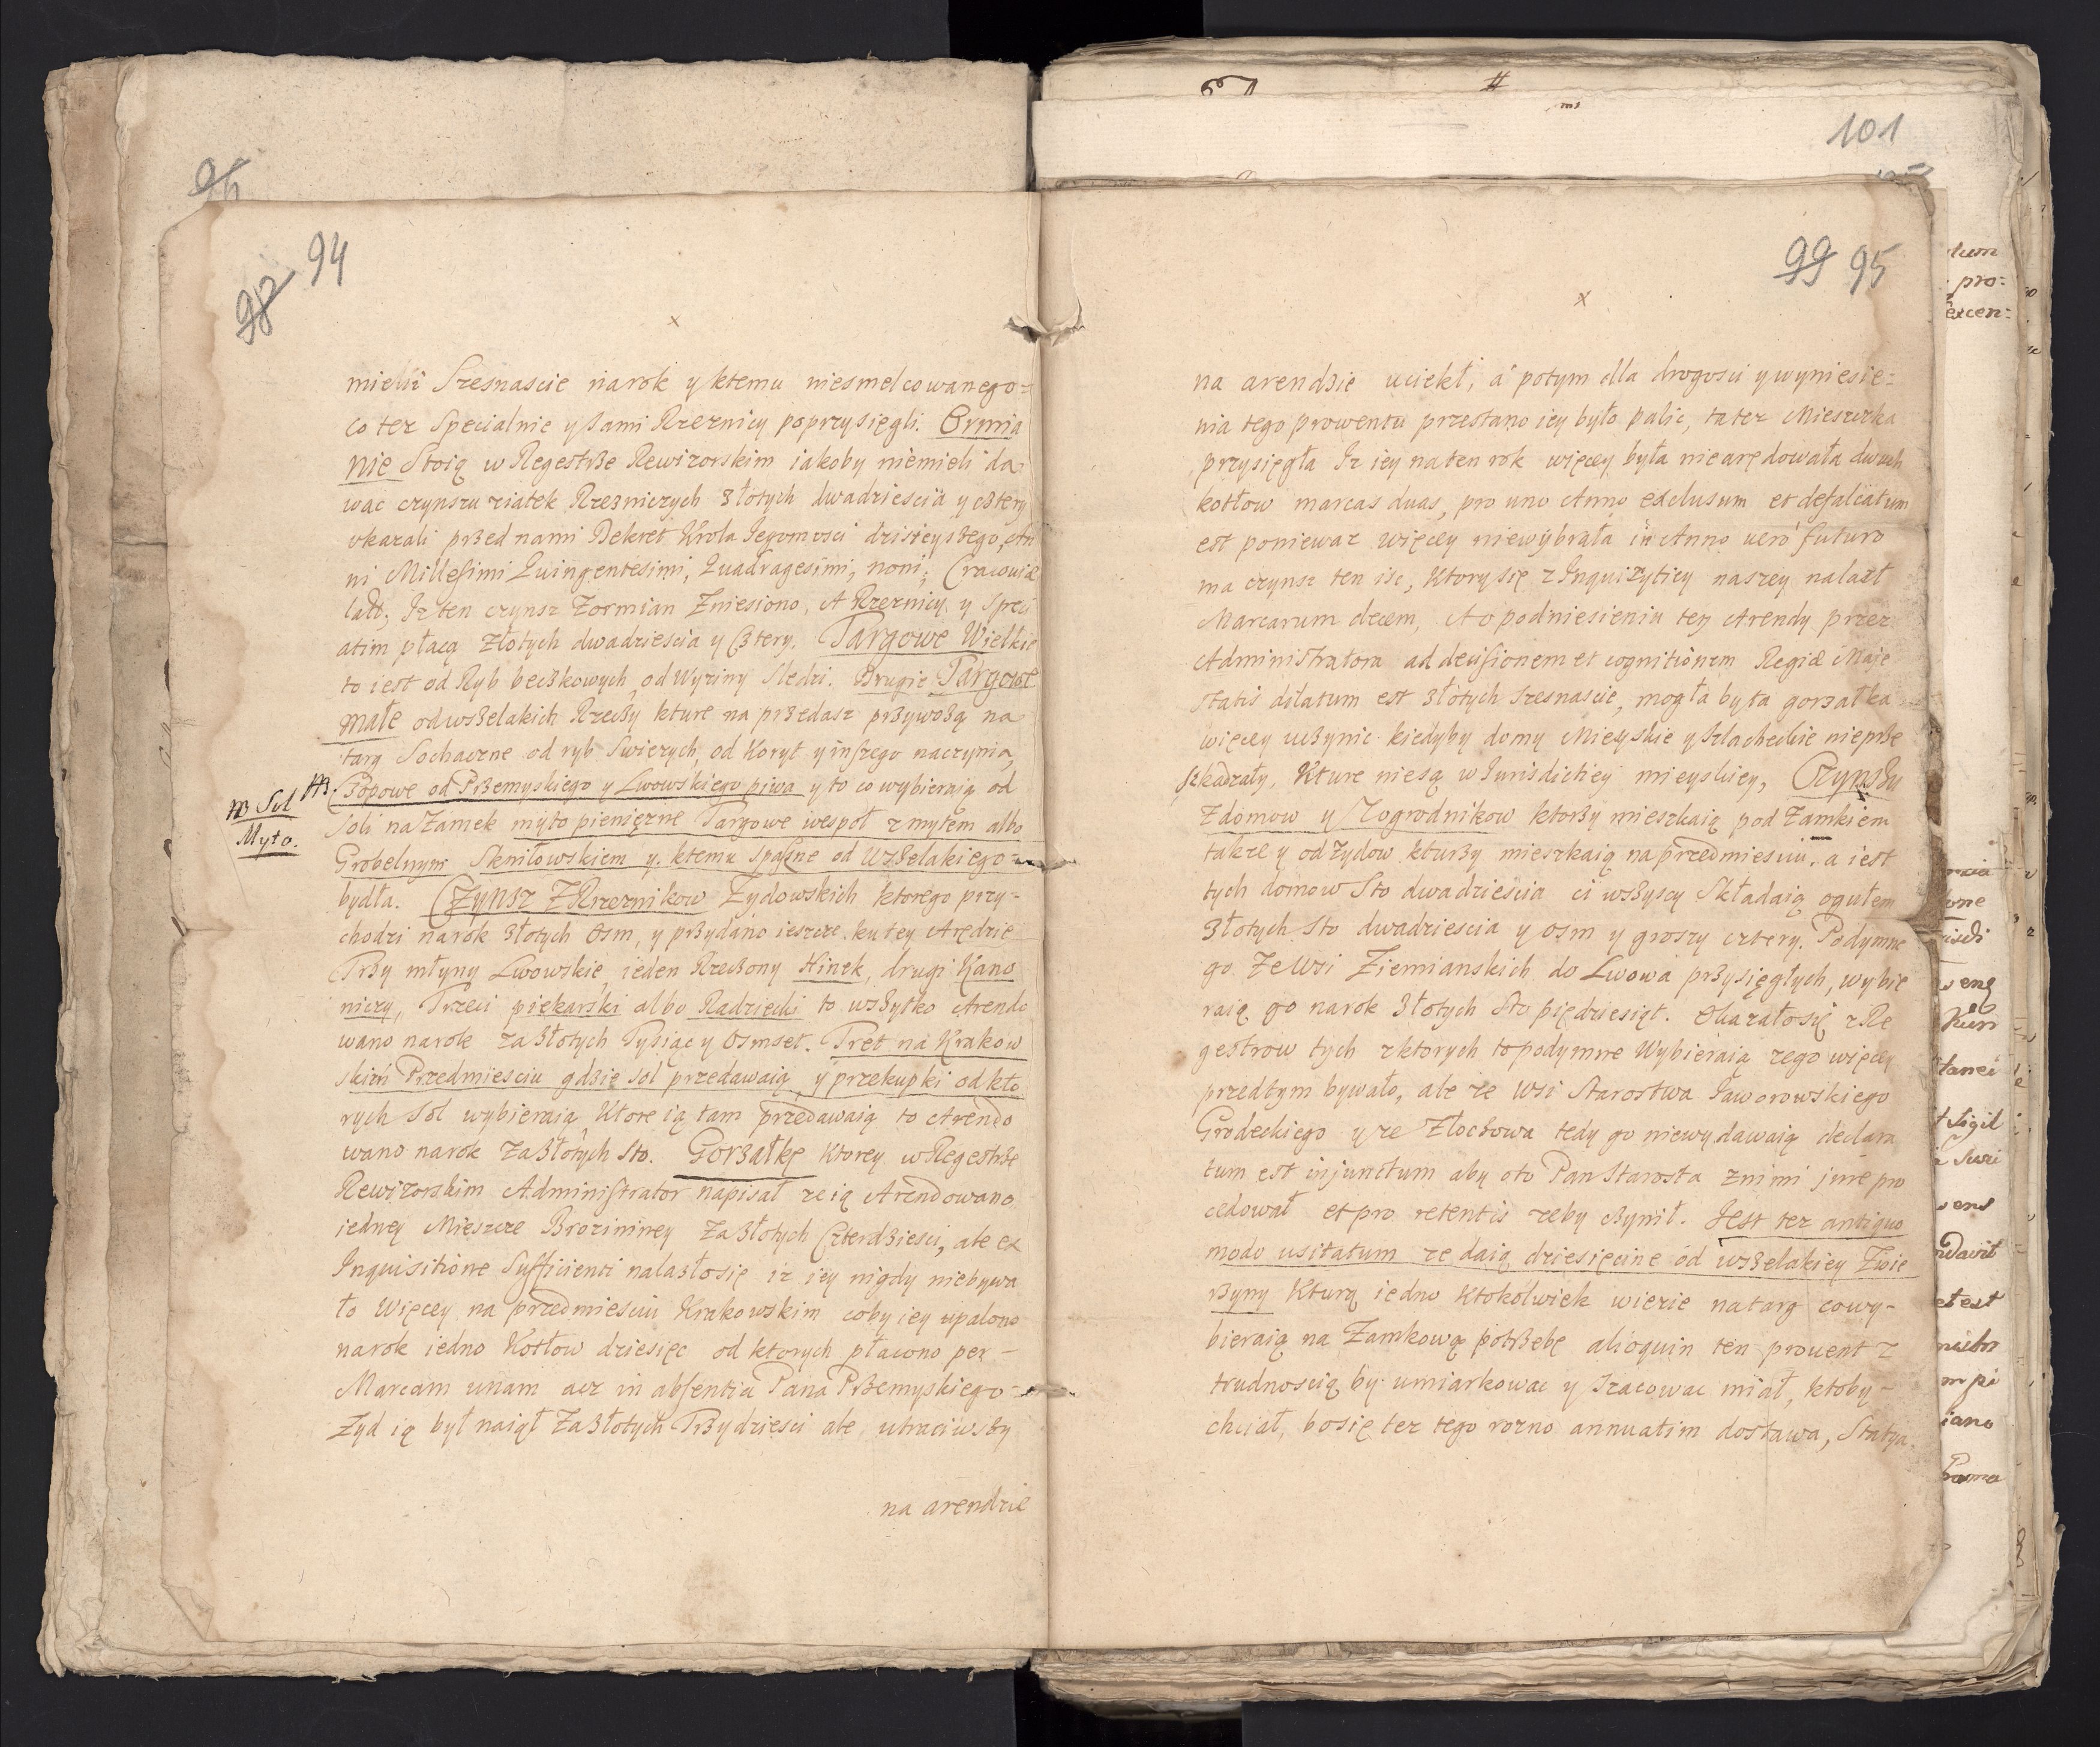 96
98 94
x
mieli Szesnascie narok y ktemu niesmelcowanego=
co tez Specialnie y sami Rzeznicy poprzysięgli. Ormia
nie Stoią w Regestrze Rewizorskim iakoby niemieli da
wac czynszu ziatek Rzezniczych złotych dwadziescia y cztery
okazali przed nami Dekret Krola Jegomosci dzisieyszego, An
ni Millesimi Quingentesimi, Quadragesimi, noni; Cracoviæ
latt; Iz ten czynsz Zormian Zniesiono, A Rzeznicy y Speci
atim płacą Złotych dwadziescia y Cztery. Targowe Wielkie
to iest od Ryb beczkowych, od Wyziny Sledzi. Drugie Targowe
małe odwszelakich Rzeczy kture na przedasz przywożą na
targ Sochaczne od ryb Swiezych, od Koryt y inszego naczynia,
Czopowe od Przemyskiego y Lwowskiego piwa y to co wybieraią od
Sol
Myto.
Soli naZamek myto pienięzne Targowe wespoł zmytem albo
Grobelnym Skniłowskiem y ktemu spaszne od Wszelakiego=
bydła. Czynsz ZRzeznikow Zydowskich ktorego przy-
chodzi narok złotych Osm, y przydano ieszcze ku tey Arędzie
Trzy młyny Lwowskie, ieden Rzeczony Hinek, drugi Kano
niczy, Trzeci piekarski albo Radziecki to wszytko Arendo
wano narok za złotych Tysiąc y Osmset. Pret na Krakow
skim Przedmiesciu gdzie sol przedawaią, y przekupki odkto
rych Sol wybieraią, Ktore ią tam przedawaią to Arendo
wano narok Zazłotych Sto. Gorzałkę Ktorey wRegestrze
Rewizorskim Administrator napisał zeią Arendowano
iedney Mieszcze Brozininey Zazłotych Czterdziesci, ale ex
Inquisitione Sufficienti nalazłosię iz iey nigdy niebywa
ło Więcey na przedmiesciu Krakowskim coby iey upalono
narok iedno Kotłow dziesięc od ktorych płacono per -
Marcam unam acz in absentia Pana Przemyskiego=
Zyd ią był naiął Zazłotych Trzydziesci ale utraciwszy
na arendzie
101
99 95
x
na arendzie uciekł, a potym dla drogosci y wyniesie=
nia tego prowentu przestano iey było palic, ta tez Mieszczka
przysięgła Iz iey naten rok więcey była niearędowała dwuch
kotłow marcas duas, pro uno Anno exclusum et defalcatum
est poniewaz więcey niewybrała in Anno vero futuro
ma czynsz ten isc, Ktory się z Inquizyticy naszey nalazł
Marcarum decem, A o podniesieniu tey Arendy przez
Administratora ad decisionem et cognitionem Regiæ Maje
statis dilatum est złotych szesnascie, mogła by ta gorzałka
więcey uczynic kiedyby domy Mieyskie y Szlacheckie nieprze
szkadzały, Kture niesą w Jurisdictiey mieyskiey, Czynszu
Zdomow y Zogrodnikow ktorzy mieszkaią pod Zamkiem
takze y odzydow kturzy mieszkaią na przedmiesciu, a iest
tych domow Sto dwadziescia ci wszyscy Składaią ogułem
złotych Sto dwadziescia y osm y groszy cztery. Podymne
go ZeWsi Ziemianskich do Lwowa przysięgłych, wybie
raią go narok złotych Sto piędziesiąt. Okazałosię zRe
gestrow tych zktorych to podymne Wybieraią zego więcey
przedtym bywało, ale ze Wsi Starostwa Jaworowskiego
Grodeckiego y ze Złoczowa tedy go niewydawaią declara
tum est injunctum aby oto Pan Starosta znimi jure pro
cedował et pro retentis zeby czynił. Jest tez antiquo
modo usitatum ze daią dziesięcine od wszelakiey Zwie
rzyny Kturą iedno Ktokolwiek wiezie natarg cowy-
bieraią na Zamkową potrzebę alioquin ten provent z
trudnoscią by umiarkowac y Szacowac miał, ktoby-
chciał, bosię tez tego rozno annuatim dostawa, Statya